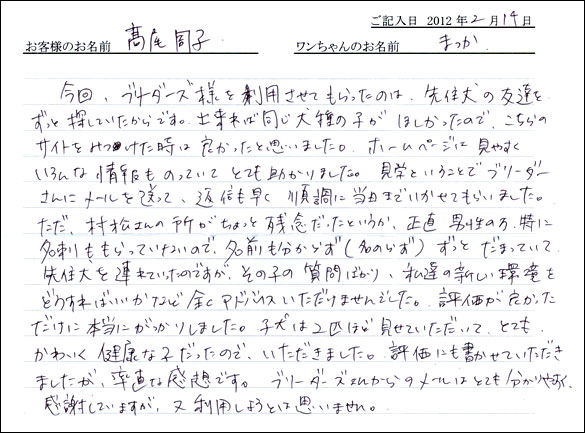 ご記入日 2012年2月14日
お客様のお名前 髙尾周子 ワンちゃんのお名前 まっか
今回、ブリーダーズ様を利用させてもらったのは、先住犬の友達を
ずっと探していたからです。出来れば同じ犬種の子がほしかったので、こちらの
サイトをみつけた時は良かったと思いました。ホームページに見やすく
いろんな情報ものっていてとても助かりました。見学ということでブリーダー
さんにメールを送って、返信も早く順調に当日までいかせてもらいました。
ただ、村松さんの所がちょっと残念だったというか、正直男性の方、特に
名刺ももらっていないので、名前も分からず(名のらず)ずっとだまっていて、
先住犬を連れていたのですが、その子の質問ばかり、私達の新しい環境を
どうすればいいかなど全くアドバイスいただけませんでした。評価が良かった
だけに本当にがっかりしました。子犬は2匹ほど見せていただいて、とても
かわいく健康な子だったので、いただきました。評価にも書かせていただき
ましたが、率直な感想です。ブリーダーズさんからのメールはとても分かりやすく、
感謝していますが、又利用しようとは思いません。